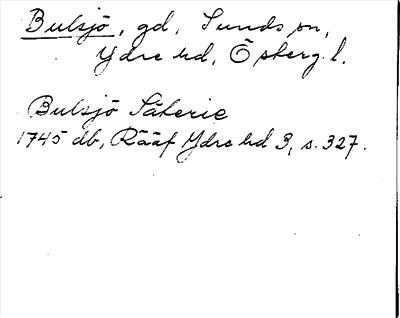 Bulsjö, gd, Sunds sn,
Ydre hd, Österg. l.
Bulsjö Säterie
1745 db, Rääf Ydre hd 3, s. 327.